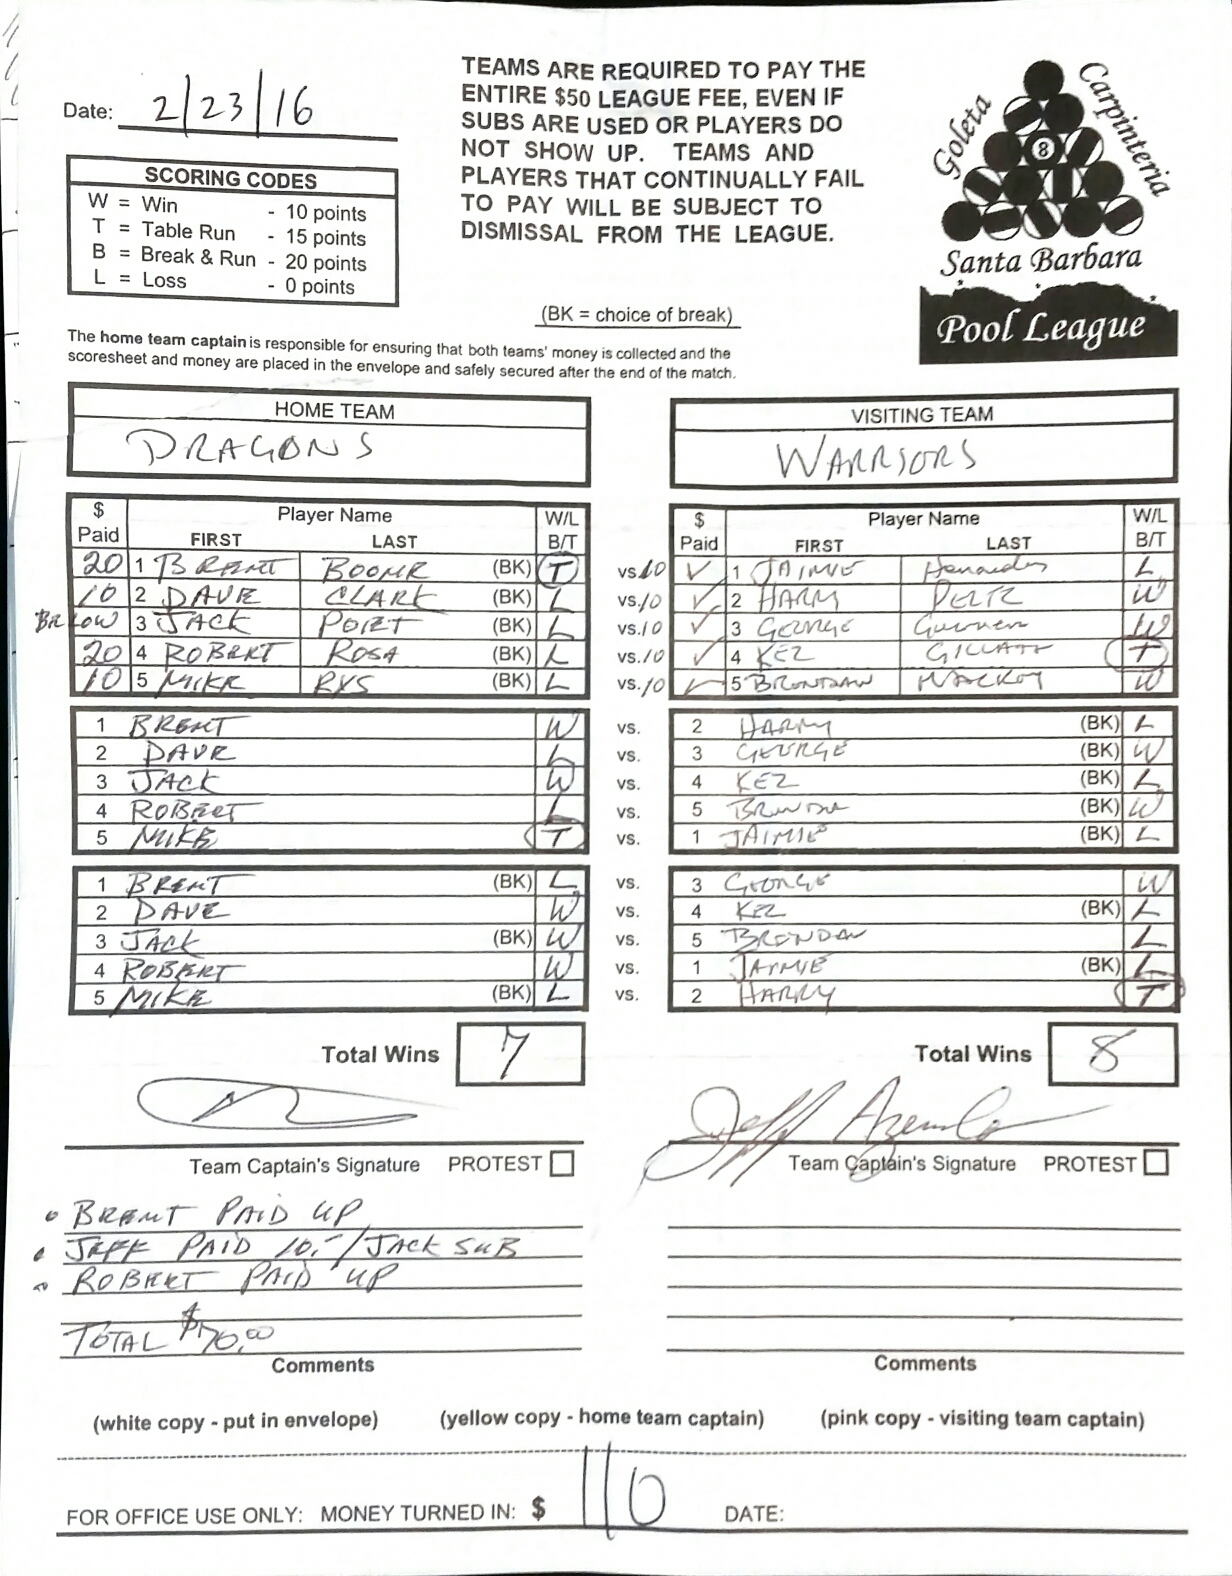 Date: 2/23/16
TEAMS ARE REQUIRED TO PAY THE
ENTIRE $50 LEAGUE FEE, EVEN IF
SUBS ARE USED OR PLAYERS DO
NOT SHOW UP. TEAMS AND
PLAYERS THAT CONTINUALLY FAIL
TO PAY WILL BE SUBJECT TO
DISMISSAL FROM THE LEAGUE.
Goleta
Carpinteria
8
Santa Barbara
Pool League
SCORING CODES
W = Win - 10 points
T = Table Run - 15 points
B = Break & Run - 20 points
L = Loss - 0 points
(BK = choice of break)
The home team captain is responsible for ensuring that both teams' money is collected and the
scoresheet and money are placed in the envelope and safely secured after the end of the match.
HOME TEAM VISITING TEAM
DRAGONS WARRIORS
$ Paid Player Name FIRST LAST W/L B/T $ Paid Player Name FIRST LAST W/L B/T
20 1 BRENT BOOMR (BK) T vs. 10 ✓ 1 JAIMIE Hernandez L
10 2 DAVE CLARK (BK) L vs. 10 ✓ 2 HARRY W
BELOW 3 JACK PORT (BK) L vs. 10 ✓ 3 GEORGE W
20 4 ROBERT ROSA (BK) L vs. 10 ✓ 4 KEZ T
10 5 MIKE RYS (BK) L vs. 10 ✓ 5 BRENDAN MACKEY W
1 BRENT W vs. 2 HARRY (BK) L
2 DAVE L vs. 3 GEORGE (BK) W
3 JACK W vs. 4 KEZ (BK) L
4 ROBERT L vs. 5 (BK) W
5 MIKE T vs. 1 JAIMIE (BK) L
1 BRENT (BK) L vs. 3 GEORGE W
2 DAVE W vs. 4 KEZ (BK) L
3 JACK (BK) W vs. 5 BRENDAN L
4 ROBERT W vs. 1 JAIMIE (BK) L
5 MIKE (BK) L vs. 2 HARRY T
Total Wins 7 Total Wins 8
Team Captain's Signature PROTEST Team Captain's Signature PROTEST
BRENT PAID UP
JEFF PAID 10.-/JACK SUB
ROBERT PAID UP
TOTAL $70.00
Comments Comments
(white copy - put in envelope) (yellow copy - home team captain) (pink copy - visiting team captain)
FOR OFFICE USE ONLY: MONEY TURNED IN: $ 110 DATE: